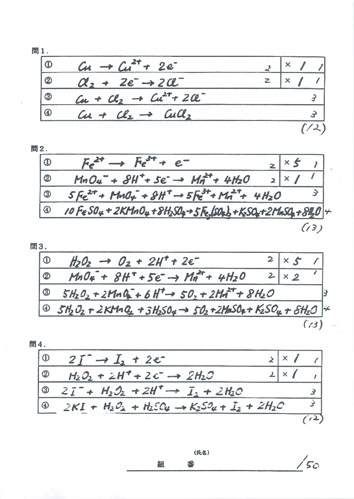 問1.
① Cu → Cu²⁺ + 2e⁻ 2 ×1 1
② Cl₂ + 2e⁻ → 2Cl⁻ 2 ×1 1
③ Cu + Cl₂ → Cu²⁺ + 2Cl⁻ 3
④ Cu + Cl₂ → CuCl₂ 3
(12)
問2.
① Fe²⁺ → Fe³⁺ + e⁻ 2 ×5 1
② MnO₄⁻ + 8H⁺ + 5e⁻ → Mn²⁺ + 4H₂O 2 ×1 1
③ 5Fe²⁺ + MnO₄⁻ + 8H⁺ → 5Fe³⁺ + Mn²⁺ + 4H₂O 3
④ 10FeSO₄ + 2KMnO₄ + 8H₂SO₄ → 5Fe₂(SO₄)₃ + K₂SO₄ + 2MnSO₄ + 8H₂O 4
(13)
問3.
① H₂O₂ → O₂ + 2H⁺ + 2e⁻ 2 ×5 1
② MnO₄⁻ + 8H⁺ + 5e⁻ → Mn²⁺ + 4H₂O 2 ×2 1
③ 5H₂O₂ + 2MnO₄⁻ + 6H⁺ → 5O₂ + 2Mn²⁺ + 8H₂O 3
④ 5H₂O₂ + 2KMnO₄ + 3H₂SO₄ → 5O₂ + 2MnSO₄ + K₂SO₄ + 8H₂O 4
(13)
問4.
① 2I⁻ → I₂ + 2e⁻ 2 ×1 1
② H₂O₂ + 2H⁺ + 2e⁻ → 2H₂O 2 ×1 1
③ 2I⁻ + H₂O₂ + 2H⁺ → I₂ + 2H₂O 3
④ 2KI + H₂O₂ + H₂SO₄ → K₂SO₄ + I₂ + 2H₂O 3
(12)
(氏名)
組 番 /50